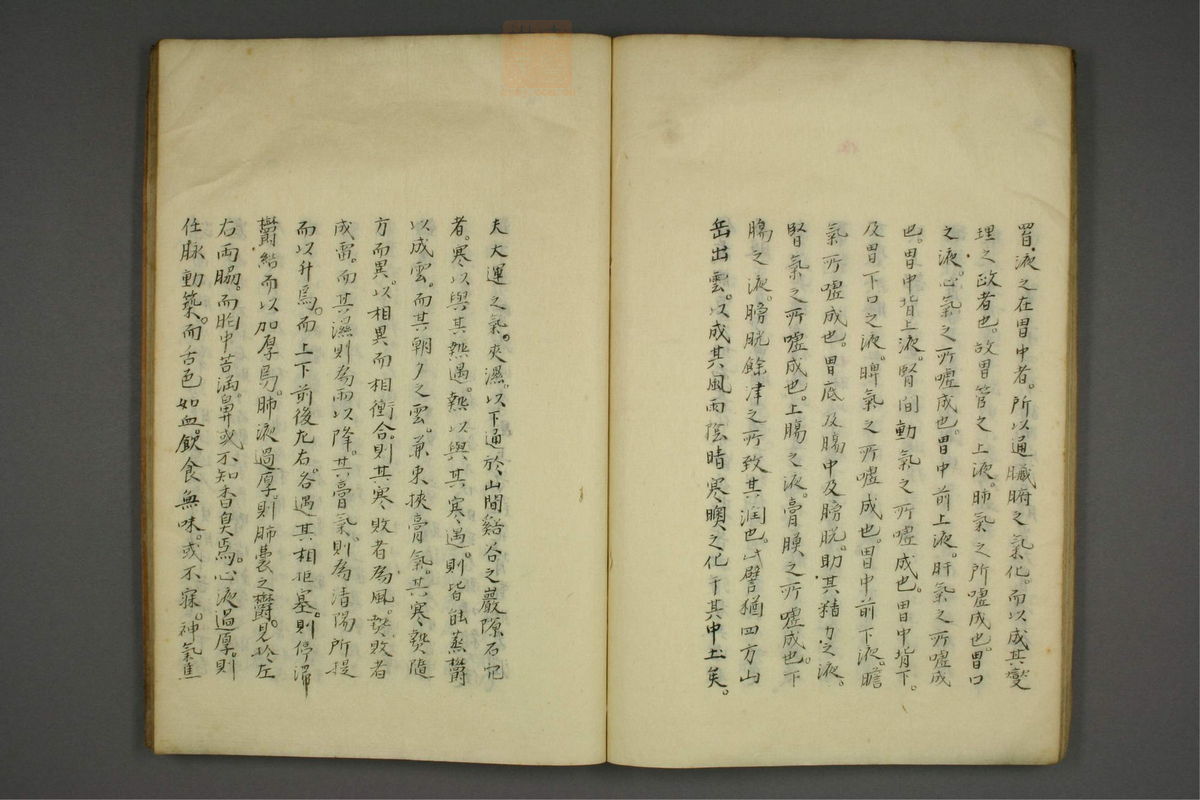 胃液之在胃中者。所以通臟腑之氣化。而以成其變
理之政者也。故胃管之上液。肺氣之所嘘成也。胃口
之液。心氣之所嘘成也。胃中前上液。肝氣之所嘘成
也。胃中背上液。腎間動氣之所嘘成也。胃中背下。
及胃下口之液。脾氣之所嘘成也。胃中前下液。膽
氣所嘘成也。胃底及腸中及膀胱。助其精力之液。
腎氣之所嘘成也。上腸之液。膏膜之所嘘成也。下
腸之液。膀胱餘津之所致其潤也。此譬猶四方山
岳出雲。以成其風雨陰晴寒燠之化于其中土矣。
夫大運之氣。夾濕。以下通於山間谿谷之巖隙石
者。寒以與其熱遇。熱以與其寒遇。則皆能蒸欝
以成雲。而其朝夕之雲。兼束挾膏氣。其寒熱隨
方而異。以相異而相衝合。則其寒敗者為風。熱敗者
成雷。而其濕則為雨以降。其膏氣。則為清陽所提
而以升焉。而上下前後左右。各遇其相拒塞。則停滯
欝結而以加厚焉。肺液過厚。則肺囊之欝。見於左
右両脇。而胸中苦満。鼻或不知香臭焉。心液過厚。則
任脉動築。而舌色如血。飲食無味。或不寐。神氣